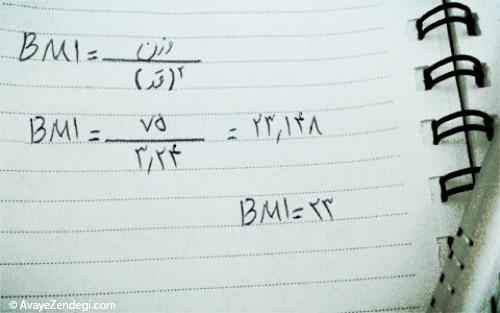 BMI = وزن / (قد)²
BMI = ۷۵ / ۳,۲۴ = ۲۳,۱۴۸
BMI = ۲۳
© AvayeZendegi.com